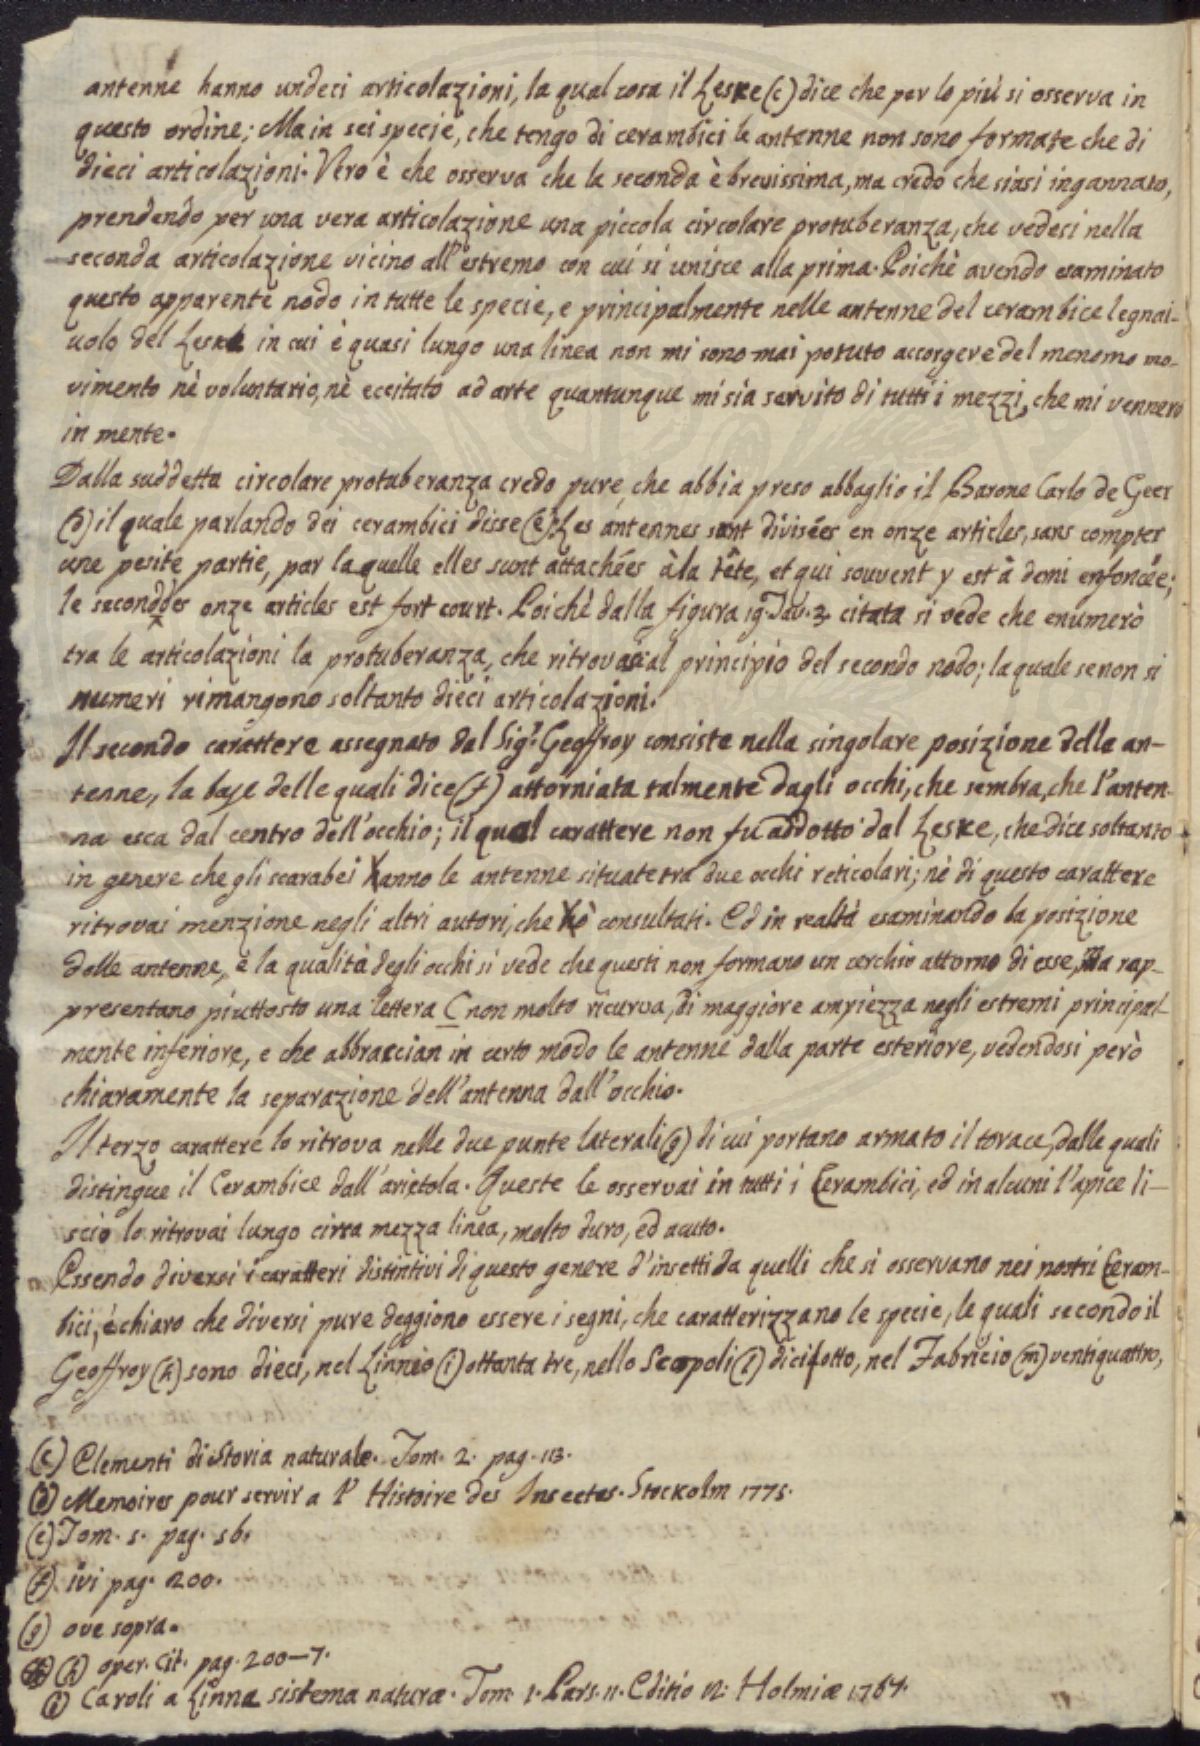 antenne hanno undeci articolazioni, la qual cosa il Leske (c) dice che per lo più si osserva in
questo ordine; Ma in sei specie, che tengo di cerambici le antenne non sono formate che di
dieci articolazioni. Vero è che osserva che la seconda è brevissima, ma credo che siasi ingannato,
prendendo per una vera articolazione una piccola circolare protuberanza, che vedesi nella
seconda articolazione vicino all'estremo con cui si unisce alla prima. Poichè avendo esaminato
questo apparente nodo in tutte le specie, e principalmente nelle antenne del cerambice legnai-
uolo del Leske in cui è quasi lungo una linea non mi sono mai potuto accorgere del menomo mo-
vimento nè voluntario, nè eccitato ad arte quantunque mi sia servito di tutti i mezzi, che mi vennero
in mente.
Dalla suddetta circolare protuberanza credo pure, che abbia preso abbaglio il Barone Carlo de Geer
(d) il quale parlando dei cerambici disse (e) Les antennes sont divisées en onze articles, sans compter
une petite partie, par laquelle elles sunt attachées à la tête, et qui souvent y est à demi enfoncée;
le second des onze articles est fort court. Poichè dalla figura 19. Tav. 3. citata si vede che enumerò
tra le articolazioni la protuberanza, che ritrovasi al principio del secondo nodo; la quale se non si
numeri rimangono soltanto dieci articolazioni.
Il secondo carattere assegnato dal Sig.r Geoffroy consiste nella singolare posizione delle an-
tenne, la base delle quali dice (f) attorniata talmente dagli occhi, che sembra, che l'anten-
na esca dal centro dell'occhio; il qual carattere non fu addotto dal Leske, che dice soltanto
in genere che gli scarabei hanno le antenne situate tra due occhi reticolari; nè di questo carattere
ritrovai menzione negli altri autori, che hò consultati. Ed in realtà esaminando la posizione
delle antenne, e la qualità degli occhi si vede che questi non formano un cerchio attorno di esse, ma rap-
presentano piuttosto una lettera C non molto ricurva, di maggiore ampiezza negli estremi principal-
mente inferiore, e che abbraccian in certo modo le antenne dalla parte esteriore, vedendosi però
chiaramente la separazione dell'antenna dall'occhio.
Il terzo carattere lo ritrova nelle due punte laterali (g) di cui portano armato il torace, dalle quali
distingue il Cerambice dall'arietola. Queste le osservai in tutti i Cerambici, ed in alcuni l'apice li-
scio lo ritrovai lungo circa mezza linea, molto duro, ed acuto.
Essendo diversi i caratteri distintivi di questo genere d'insetti da quelli che si osservano nei nostri Ceram-
bici, è chiaro che diversi pure deggiono essere i segni, che caratterizzano le specie, le quali secondo il
Geoffroy (h) sono dieci, nel Linnéo (i) ottanta tre, nello Scopoli (l) diciotto, nel Fabricio (m) ventiquattro,
(c) Elementi di Storia naturale. Tom. 2. pag. 113.
(d) Memoires pour servir a l' Histoire des Insectes. Stockolm 1775.
(e) Tom. 5. pag. 56.
(f) ivi pag. 200.
(g) ove sopra.
(h) oper. cit. pag. 200–7.
(i) Caroli a Linna sistema naturæ. Tom. 1. Pars. 11. Editio 12. Holmiæ 1767.